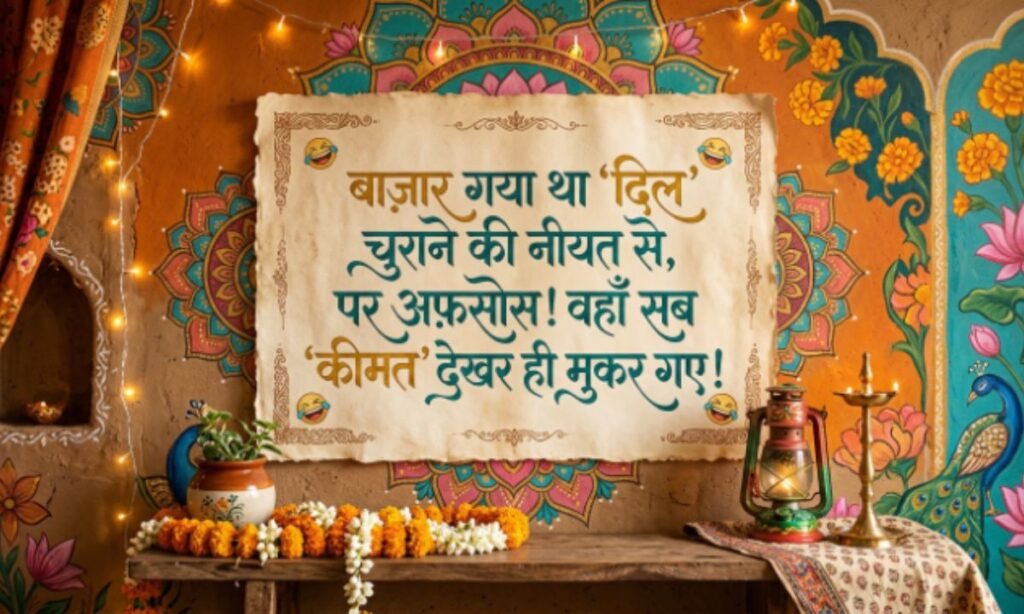 बाज़ार गया था ‘दिल’
चुराने की नीयत से,
पर अफ़सोस! वहाँ सब
‘कीमत’ देखर ही मुकर गए!